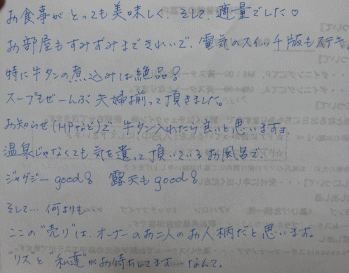 お食事がとっても美味しく、そして、適量でした♡
お部屋もすみずみまできれいで、電気のスイッチ版もステキ。
特に牛タンの煮込みは絶品!
スープもぜーんぶ夫婦揃って頂きました。
お知らせ(HPなど)で、牛タン入れたり良いと思いますョ。
温泉じゃなくても気を遣って頂いているお風呂で、
ジャグジーgood! 露天もgood!
そして… 何よりも…
ここの"売り"は、オーナーのお二人のお人柄だと思います。
"リスと私達がお待ちしてます"なんて。